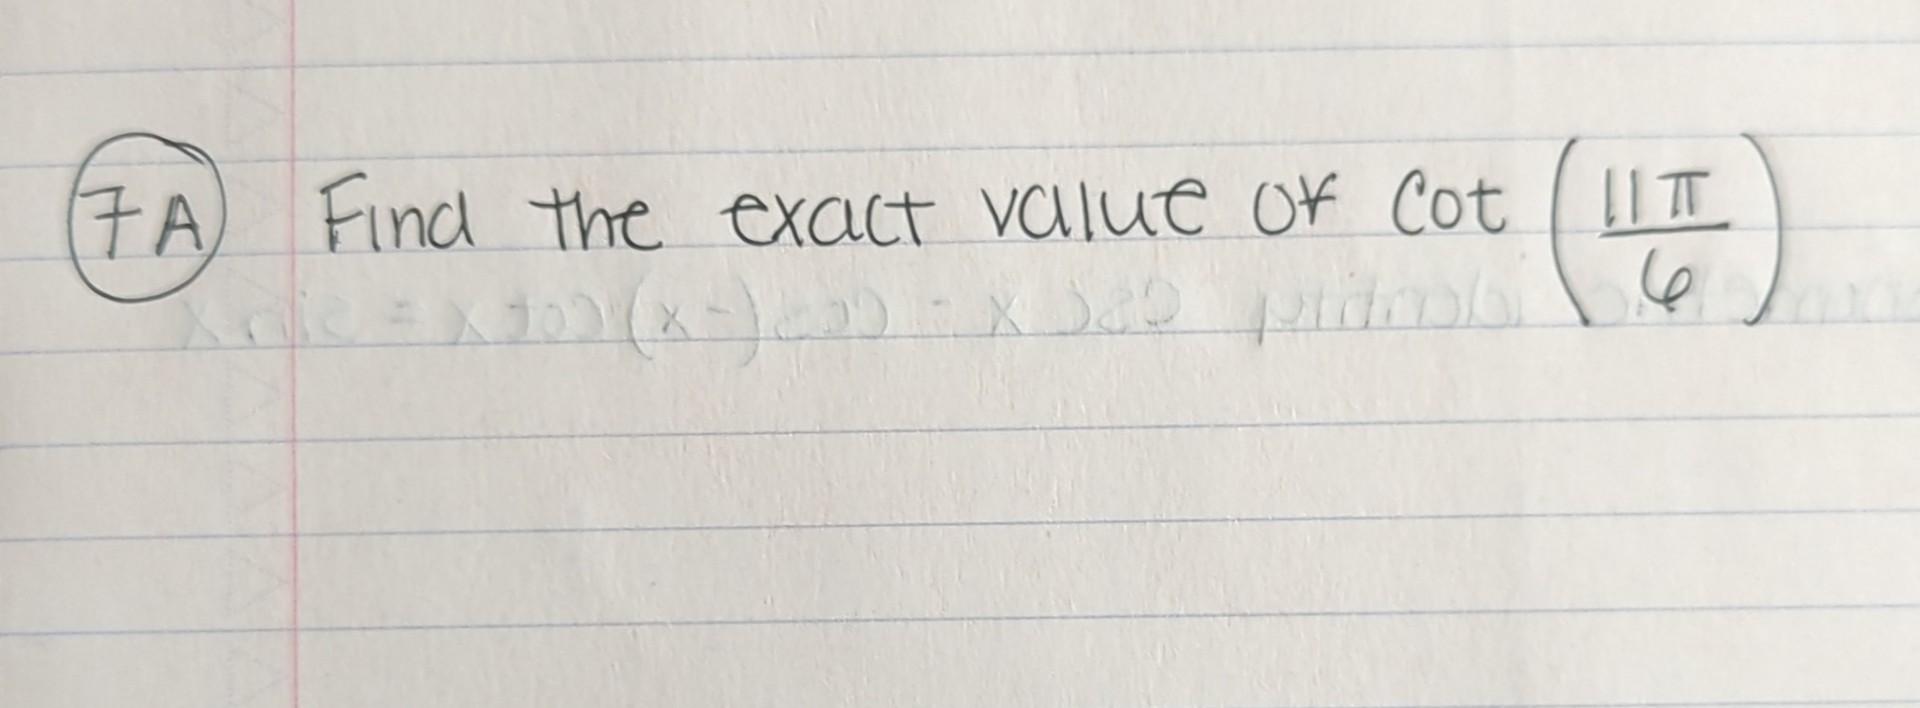 7A Find the exact value of cot (11π/6)